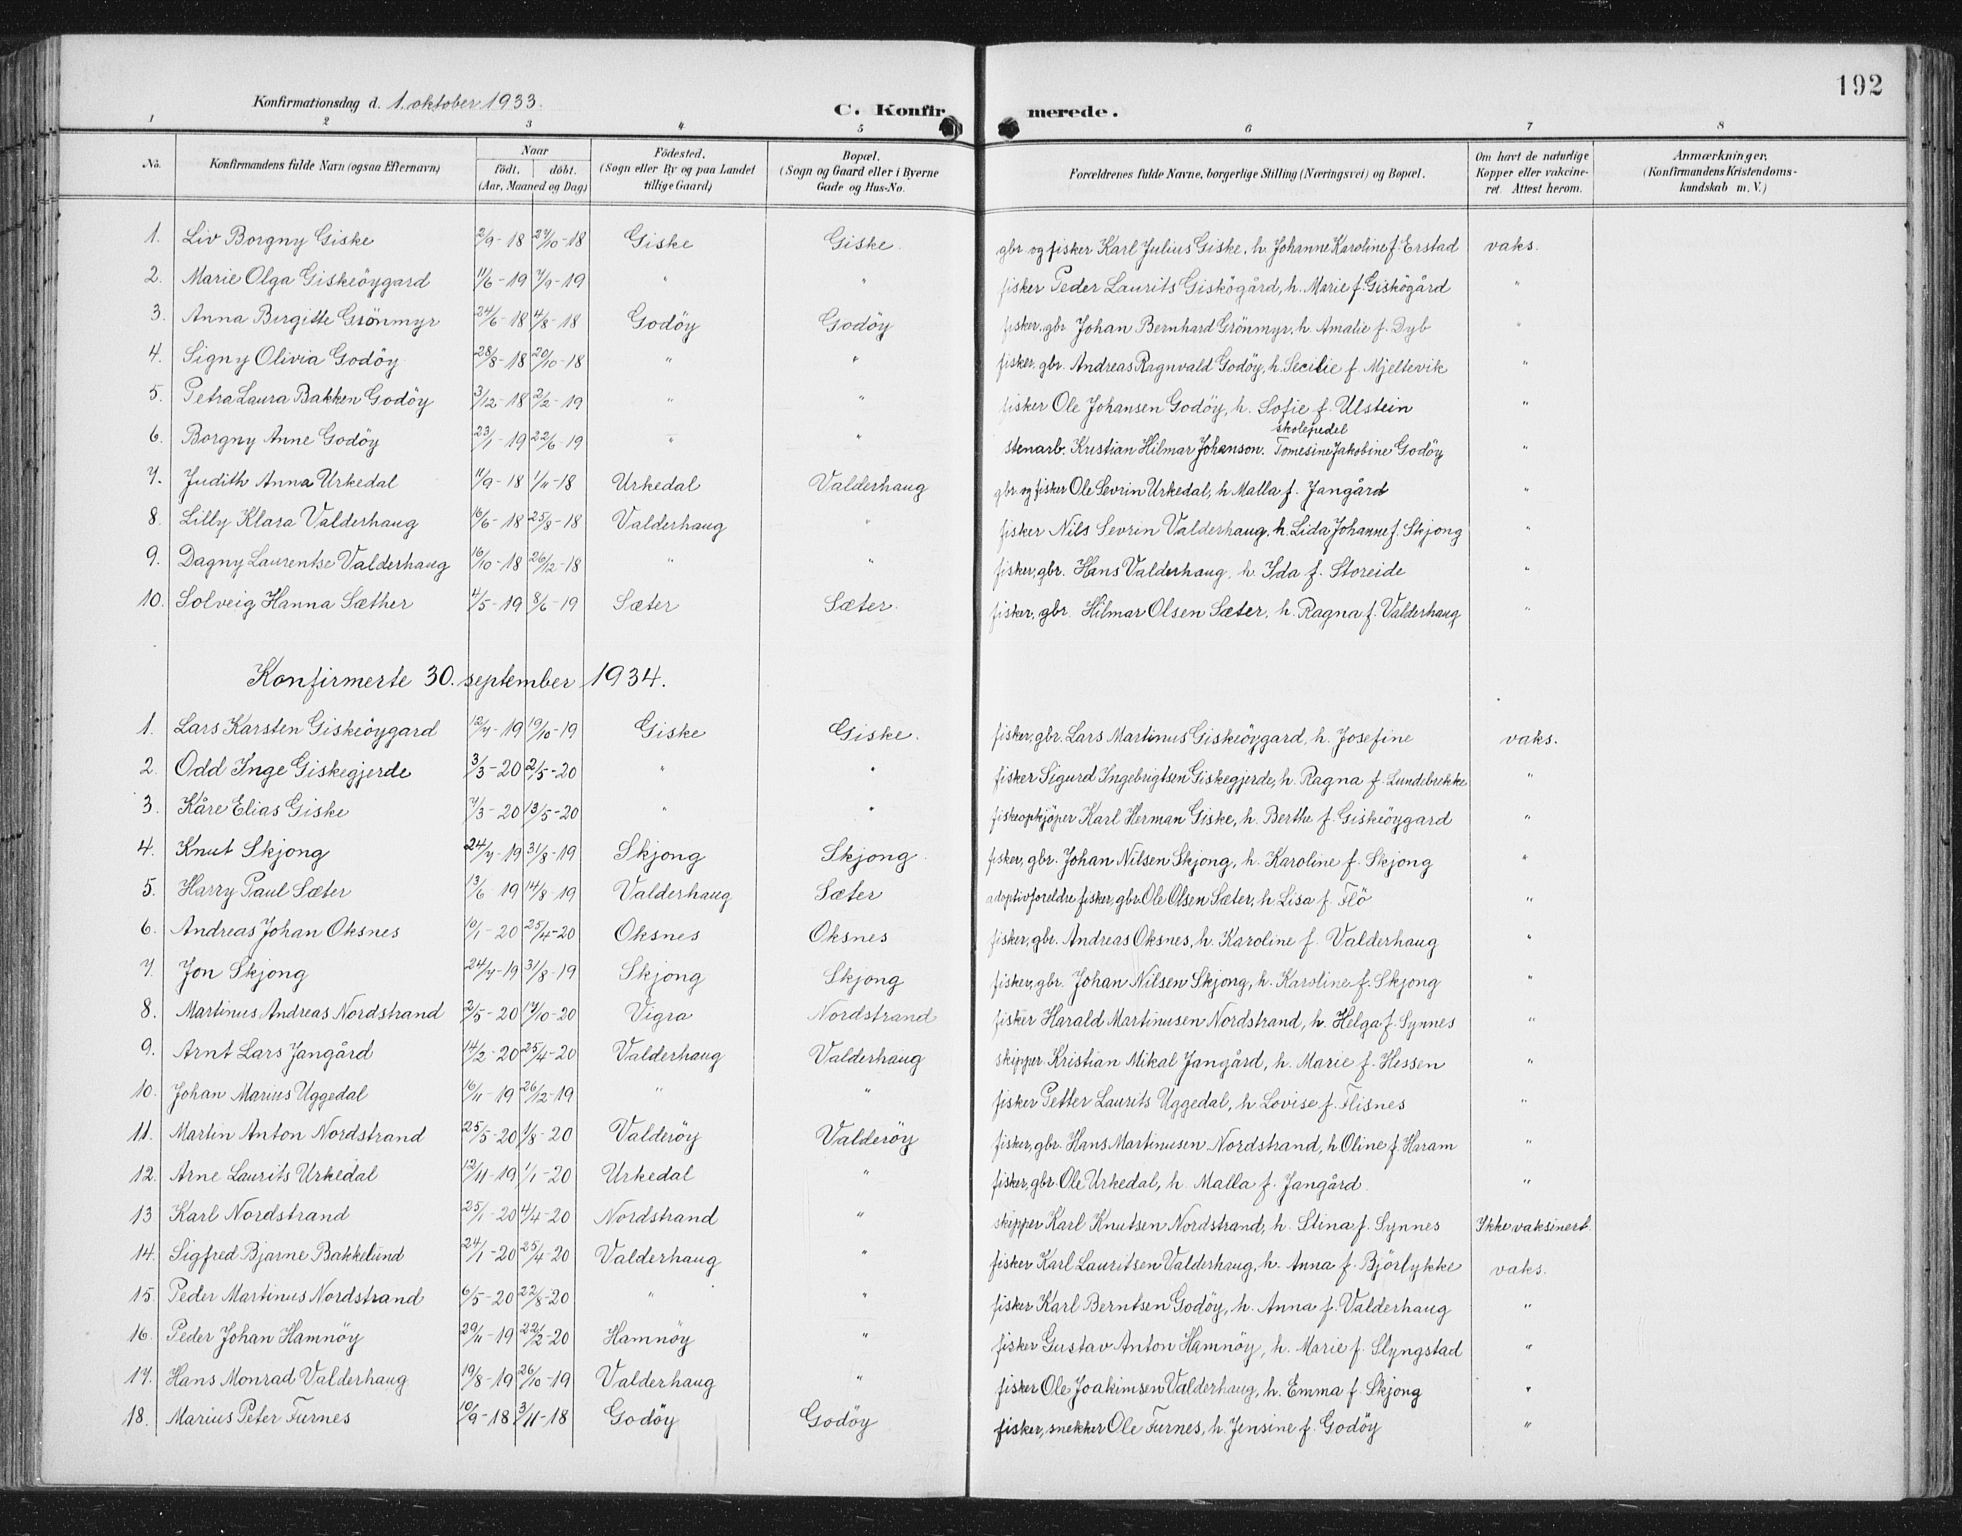 192
Konfirmationsdag d. 1. oktober 1933.
C. Konfir merede.
1 2 3 4 5 6 7 8
No. Konfirmandens fulde Navn (ogsaa Efternavn) Naar født, døbt. (Aar, Maaned og Dag) Fødested. (Sogn eller By og paa Landet tillige Gaard) Bopæl. (Sogn og Gaard eller i Byerne Gade og Hus-No. Forældrenes fulde Navne, borgerlige Stilling (Næringsvei) og Bopæl. Om havt de naturlige Kopper eller vakcineret. Attest herom. Anmærkninger. (Konfirmandens Kristendomskundskab m. V.)
1. Liv Borgny Giske 2/9-18 27/10-18 Giske Giske. gbr og fisker Karl Julius Giske, h. Johanne Karoline f. Erstad vaks.
2. Marie Olga Giskeöygard 11/6-19 7/9-19 " " fisker Peder Laurits Giskögård, h. Marie f. Giskögård "
3. Anna Birgitte Grönmyr 24/6-18 4/8-18 Godöy Godöy fisker, gbr Johan Bernhard Grönmyr, h. Amalie f. Dyb "
4. Signy Olivia Godöy 28/8-18 20/10-18 " " fisker, gbr. Andreas Ragnvald Godöy, h. Secilie f. Mjeltevik "
5. Petra Laura Bakken Godöy 3/12-18 2/2-19 " " fisker Ole Johansen Godöy, h. Sofie f. Ulstein "
skolepedel
6. Borgny Anne Godöy 23/1-19 22/6-19 " " stenarb. Kristian Hilmar Johanson. Tomesine Jakobine Godöy "
7. Judith Anna Urkedal 11/9-18 1/11-18 Urkedal Valderhaug gbr og fisker Ole Sevrin Urkedal, h Malla f. Jangård "
8. Lilly Klara Valderhaug 16/6-18 25/8-18 Valderhaug " fisker Nils Sevrin Valderhaug, h. Lida Johanne f. Skjong "
9. Dagny Laurentse Valderhaug 16/10-18 26/12-18 " " fisker, gbr. Hans Valderhaug, h. Ida f. Storeide "
10. Solveig Hanna Sæther 4/5-19 8/6-19 Sæter Sæter. fisker, gbr. Hilmar Olsen Sæter, h. Ragna f. Valderhaug "
Konfirmerte 30. september 1934.
1. Lars Karsten Giskeöygard 12/7-19 19/10-19 Giske Giske. fisker, gbr. Lars Martinus Giskeöygard, h. Josefine vaks.
2. Odd Inge Giskegjerde 3/3-20 2/5-20 " " fisker Sigurd Ingebrigtsen Giskegjerde, h. Ragna f. Lundebrekke "
3. Kåre Elias Giske 7/3-20 13/5-20 " " fiskeopkjöper Karl Herman Giske, h. Berthe f. Giskeöygard "
4. Knut Skjong 24/7-19 31/8-19 Skjong Skjong. fisker, gbr. Johan Nilsen Skjong, h. Karoline f. Skjong "
5. Harry Paul Sæter 13/6-19 14/8-19 Valderhaug Sæter adoptivforeldre fisker, gbr. Ole Olsen Sæter, h. Lisa f. Flö "
6. Andreas Johan Oksnes 10/1-20 25/4-20 Oksnes Oksnes fisker, gbr. Andreas Oksnes, h. Karoline f. Valderhaug "
7. Jon Skjong 24/7-19 31/8-19 Skjong Skjong fisker, gbr. Johan Nilsen Skjong, h. Karoline f. Skjong "
8. Martinus Andreas Nordstrand 2/5-20 17/10-20 Vigra Nordstrand fisker Harald Martinusen Nordstrand, h. Helga f. Synnes "
9. Arnt Lars Jangård 14/2-20 25/4-20 Valderhaug Valderhaug skipper Kristian Mikal Jangård, h. Marie f. Hessen "
10. Johan Marius Uggedal 16/11-19 26/12-19 " " fisker Petter Laurits Uggedal, h. Lovise f. Flisnes "
11. Martin Anton Nordstrand 25/5-20 1/8-20 Valderöy Valderöy fisker, gbr. Hans Martinusen Nordstrand, h Oline f. Haram "
12. Arne Laurits Urkedal 12/11-19 1/1-20 Urkedal " fisker, gbr. Ole Urkedal, h. Malla f. Jangård. "
13 Karl Nordstrand 25/1-20 4/4-20 Nordstrand " skipper Karl Knutsen Nordstrand, h. Stina f. Synnes Ikke vaksinert
14. Sigfred Bjarne Bakkelund 24/1-20 25/4-20 Valderhaug " fisker Karl Lauritsen Valderhaug, h. Anna f. Björlykke vaks.
15. Peder Martinus Nordstrand 6/5-20 22/8-20 " " fisker Karl Berntsen Godöy, h. Anna f. Valderhaug "
16. Peder Johan Hamnöy 29/11-19 22/2-20 Hamnöy " fisker Gustav Anton Hamnöy, h. Marie f. Slyngstad "
17. Hans Monrad Valderhaug 19/8-19 26/10-19 Valderhaug " fisker Ole Joakimsen Valderhaug, h. Emma f. Skjong "
18. Marius Peter Furnes 10/9-18 3/11-18 Godöy Godöy fisker, snekker Ole Furnes, h. Jensine f. Godöy "